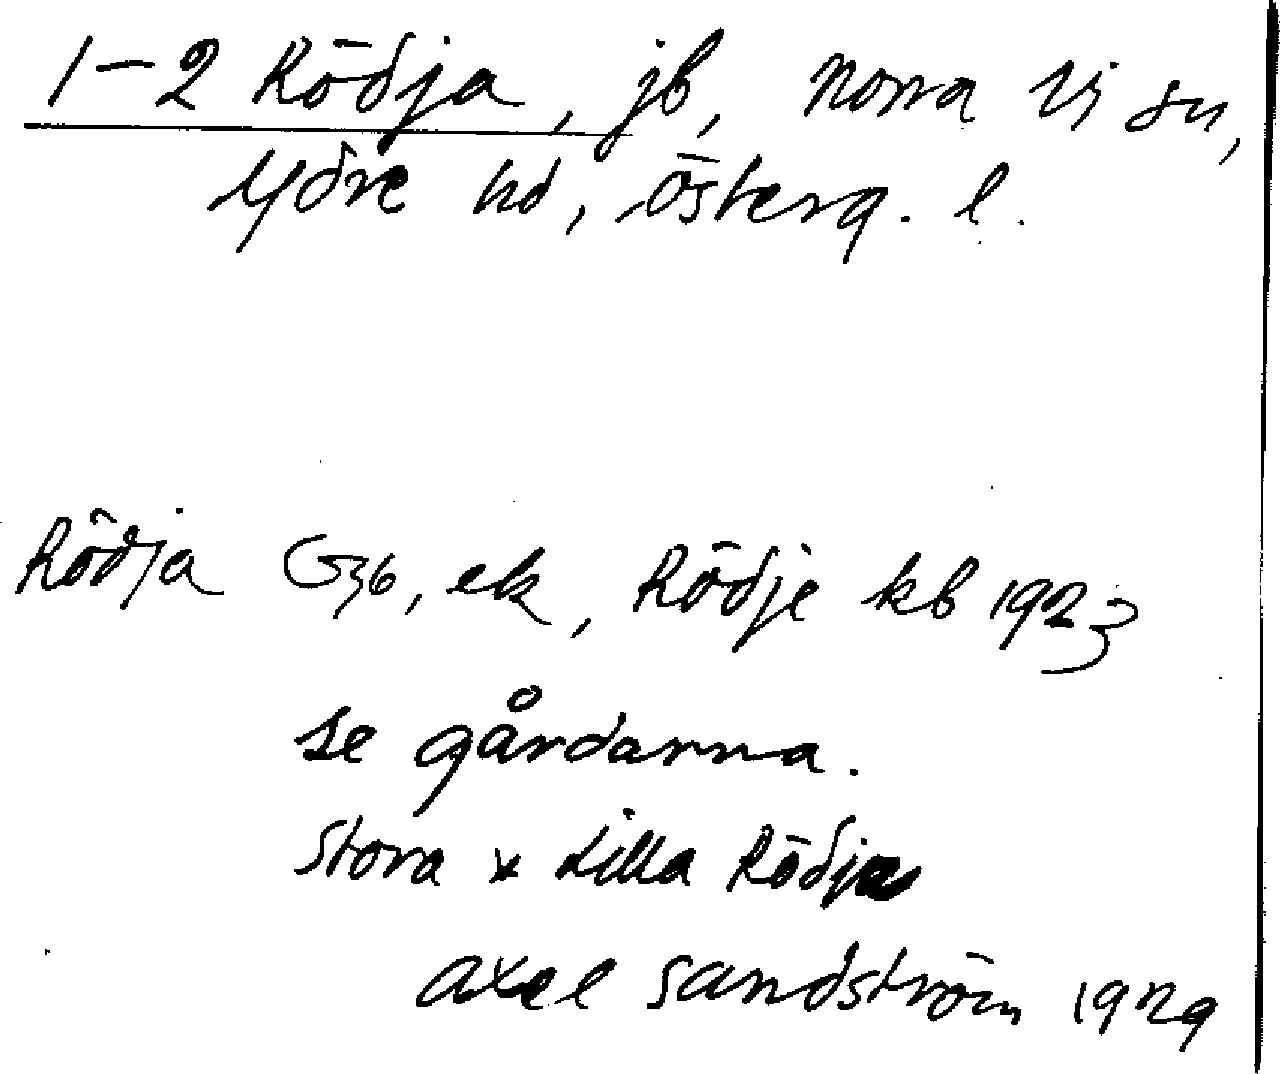 1-2 Rödja, jb, Norra Vi sn,
Ydre hd, Österg. l.
Rödja G36, ek, Rödje kb 1923
se gårdarna.
Stora x Lilla Rödja
Axel Sandström 1929